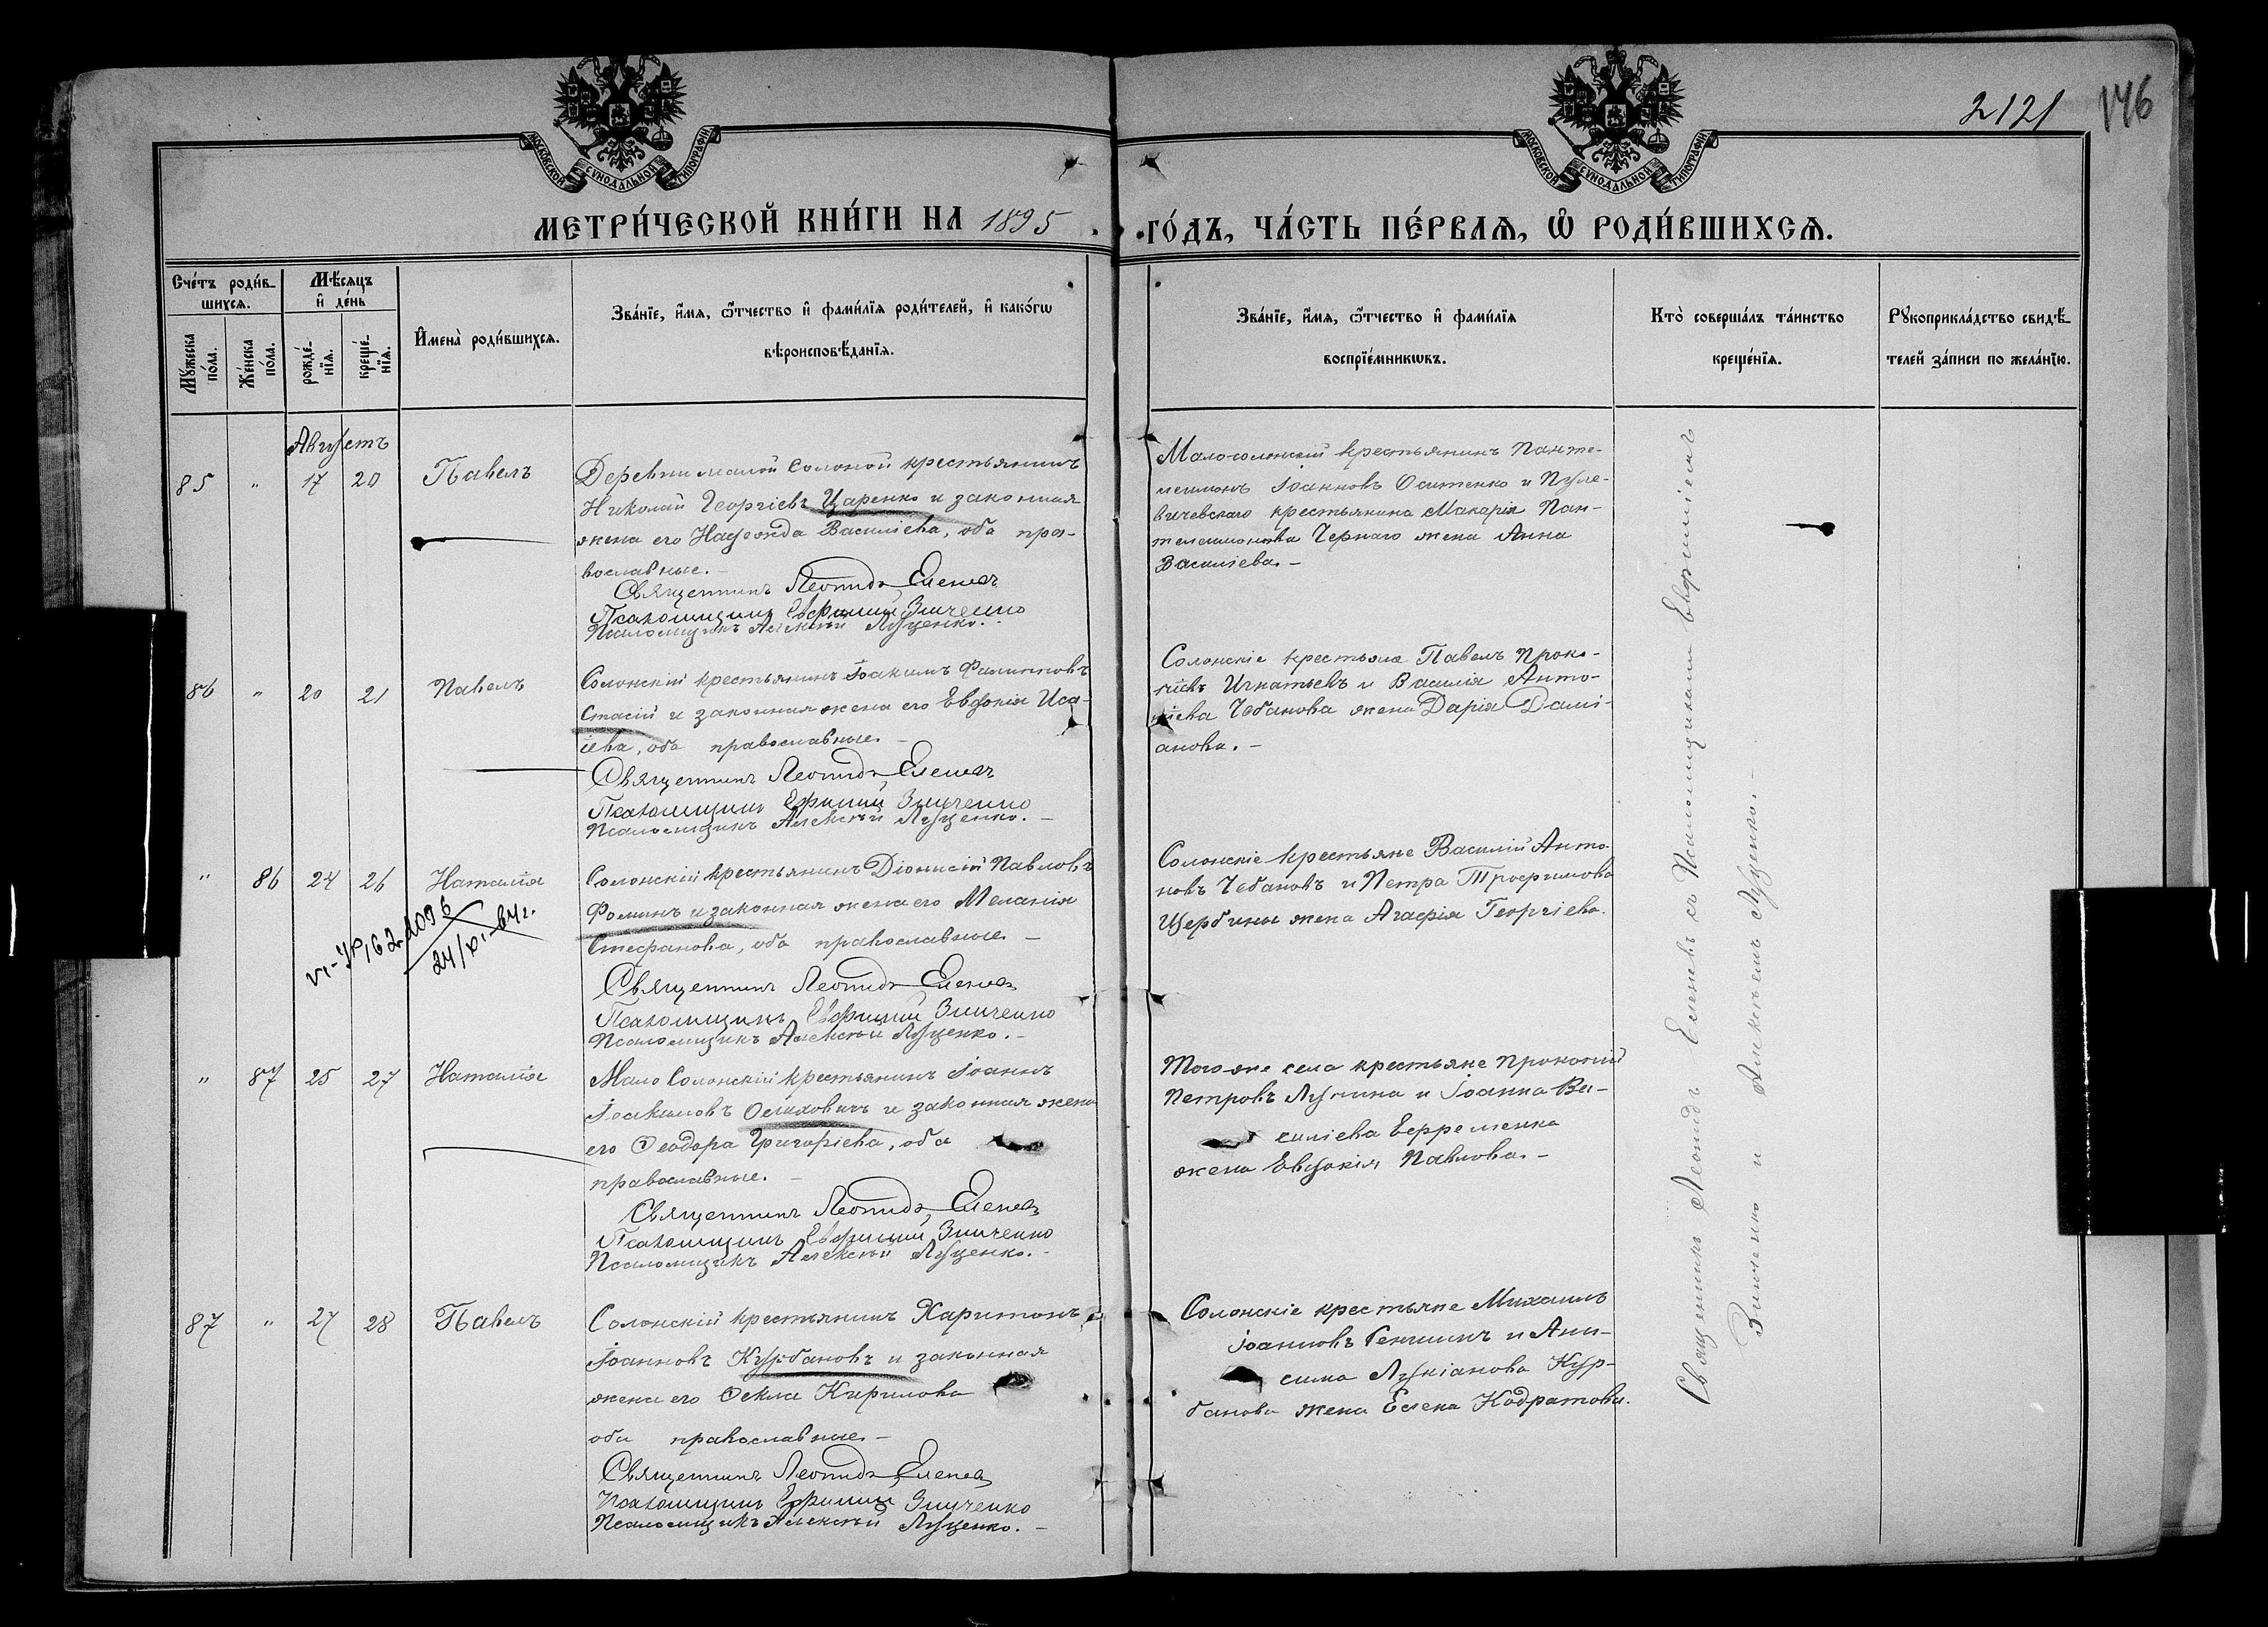 2121 146
МОСКОВСКОЙ СѴНОДАЛЬНОЙ ТИПОГРАФІИ
МОСКОВСКОЙ СѴНОДАЛЬНОЙ ТИПОГРАФІИ
МЕТРИ́ЧЕСКОЙ КНИ́ГИ НА 1895 ГО́ДЪ, ЧА́СТЬ ПЕ́РВАѦ, Ѽ РОДИ́ВШИХСѦ.
Сче́тъ роди́в-
шихсѧ.
Мꙋ́жеска по́ла.
Же́нска по́ла.
Мѣ́сяцъ и҆ де́нь
рожде́-
нїѧ.
креще́-
нїѧ.
И҆мена̀ роди́вшихсѧ.
Зва́нїе, и҆́мѧ, ѻ҆́тчество и҆ фами́лїѧ роди́телей, и҆ како́гѡ
вѣроисповѣ́данїѧ.
Зва́нїе, и҆́мѧ, ѻ҆́тчество и҆ фами́лїѧ
воспрїе́мникѡвъ.
Кто̀ соверша́лъ та́инство
креще́нїѧ.
Рꙋкоприкла́дство свидѣ́-
телей за́писи по жела́нїю.
Августъ
85 " 17 20 Павелъ
Деревни малой Солоной крестьянинъ
Николай Георгіевъ Царенко и законная
жена его Надежда Василіева, оба пра-
вославные.-
Священникъ Леонидъ Еленевъ
Псаломщикъ Евфимій Зинченко
Псаломщикъ Алексѣй Луценко.-
Малосолонскій крестьянинъ Панте-
леимонъ Іоанновъ Оситенко и
крестьянина Макарія Пан-
телеимонова Чернаго жена Анна
Василіева.-
86 " 20 21 Павелъ
Солонскій крестьянинъ Іоакимъ Филипповъ
Стасій и законная жена его Евдокія Иса-
іева, оба православные.-
Священникъ Леонидъ Еленевъ
Псаломщикъ Ефимій Зинченко
Псаломщикъ Алексѣй Луценко.-
Солонскіе крестьяне Павелъ Проко-
піевъ Игнатьевъ и Василія Анто-
ніева Чебанова жена Дарія Дамі-
анова.-
" 86 24 26 Наталія
Солонскій крестьянинъ Діонисій Павловъ
Фоминъ и законная жена его Меланія
Стефанова, оба православные -
Священникъ Леонидъ Еленевъ
Псаломщикъ Евфимій Зинченко
Псаломщикъ Алексѣй Луценко.-
Солонскіе крестьяне Василій Анто-
новъ Чебановъ и Петра Трофимова
Щербины жена Агафія Георгіева.
" 87 25 27 Наталія
Мало Солонскій крестьянинъ Іоаннъ
Іоакимовъ Осиховичъ и законная жена
его Ѳеодора Григоріева, оба
православные.-
Священникъ Леонидъ Еленевъ
Псаломщикъ Евфимій Зинченко
Псаломщикъ Алексѣй Луценко.-
Того-же села крестьяне Прокопій
Петровъ Лупина и Іоанна Ва-
силіева Ефременка
жена Евдокія Павлова.-
87 " 27 28 Павелъ
Солонскій крестьянинъ Харитонъ
Іоанновъ Курбановъ и законная
жена его Ѳекла Кирилова
оба православные.-
Священникъ Леонидъ Еленевъ
Псаломщикъ Ефимій Зинченко
Псаломщикъ Алексѣй Луценко.-
Солонскіе крестьяне Михаилъ
Іоанновъ Генчинъ и Ани-
сима Лукіанова Кур-
банова жена Елена Кодратова.
Священникъ Леонидъ Еленевъ съ Псаломщиками Евфиміемъ
Зинченко и Алексѣемъ Луценко.-